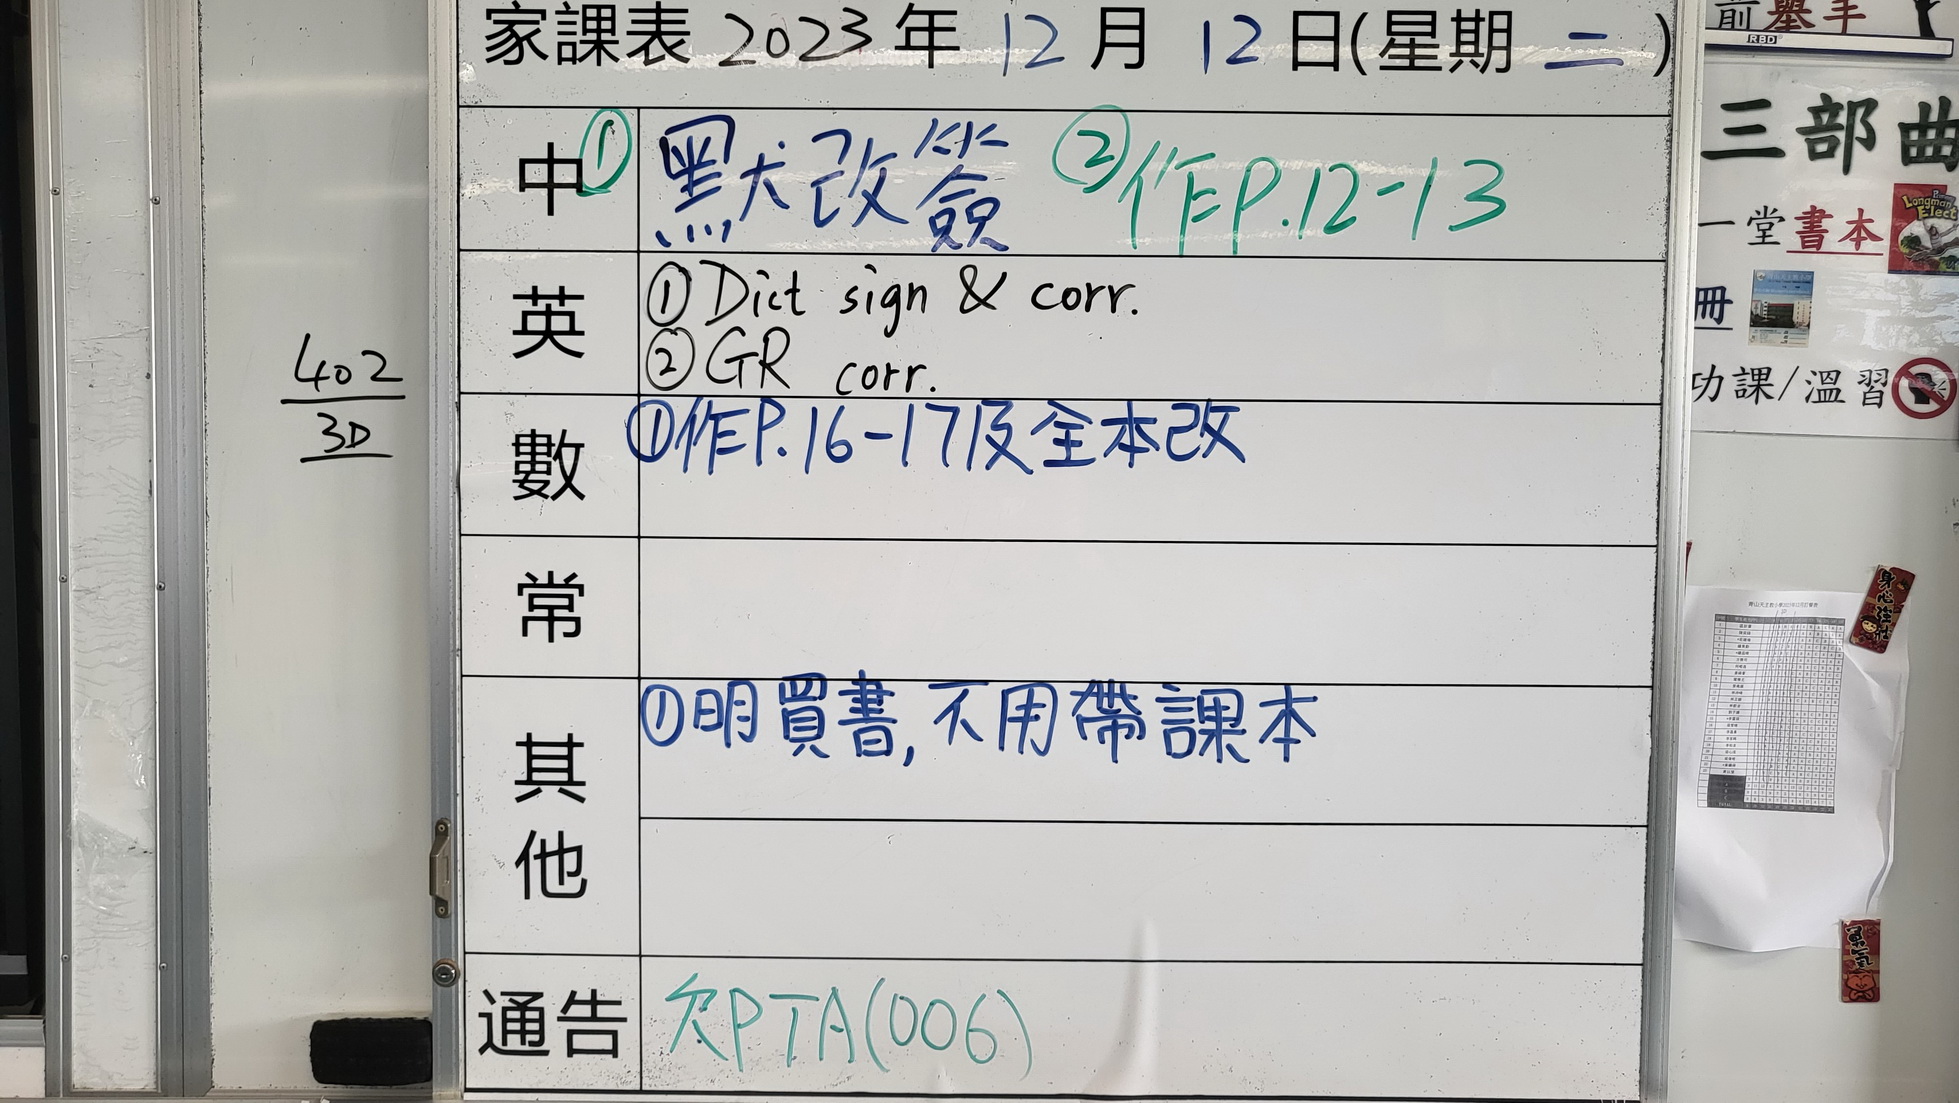 家課表 2023 年 12 月 12 日(星期 二 )
中 ① 默改簽 ② 作P.12-13
英 ① Dict sign & corr.
② GR corr.
數 ①作P.16-17及全本改
常
其他 ①明買書,不用帶課本
通告 欠PTA(006)
402
3D
前舉手
RBD
三部曲
一堂書本
Longman
Elect
冊
功課/溫習
身心強壯